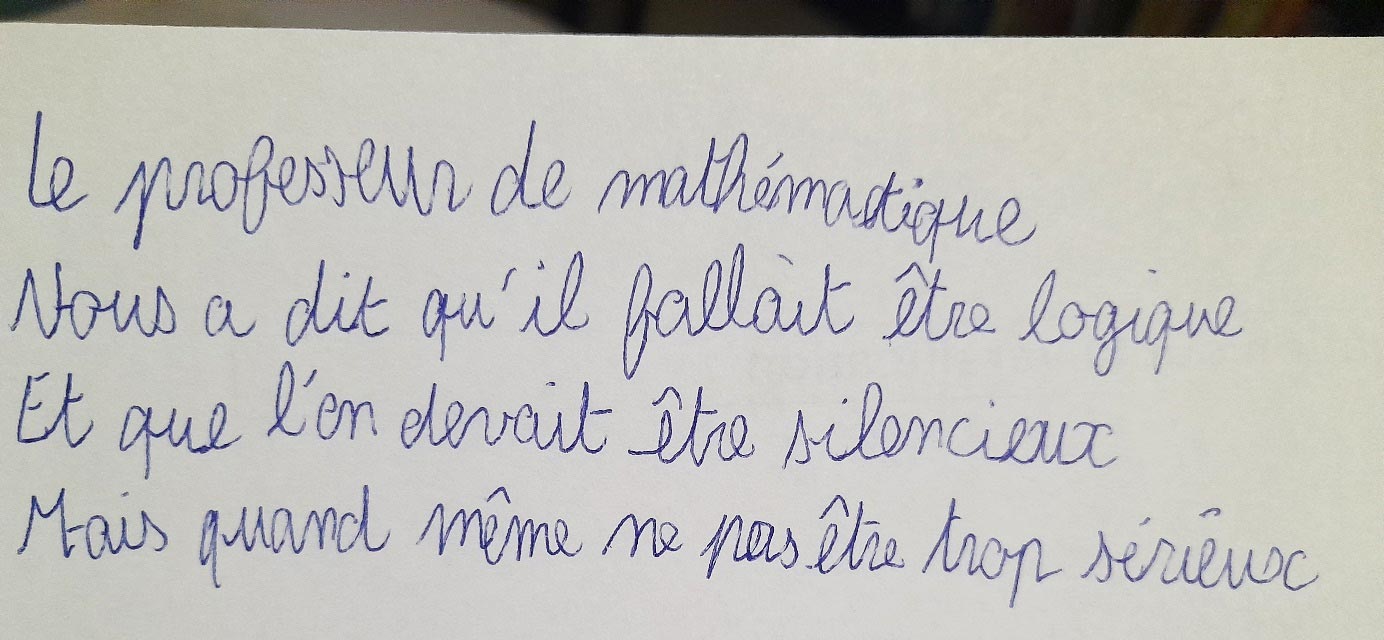 Le professeur de mathématique
Nous a dit qu'il fallait être logique
Et que l'on devait être silencieux
Mais quand même ne pas être trop sérieux